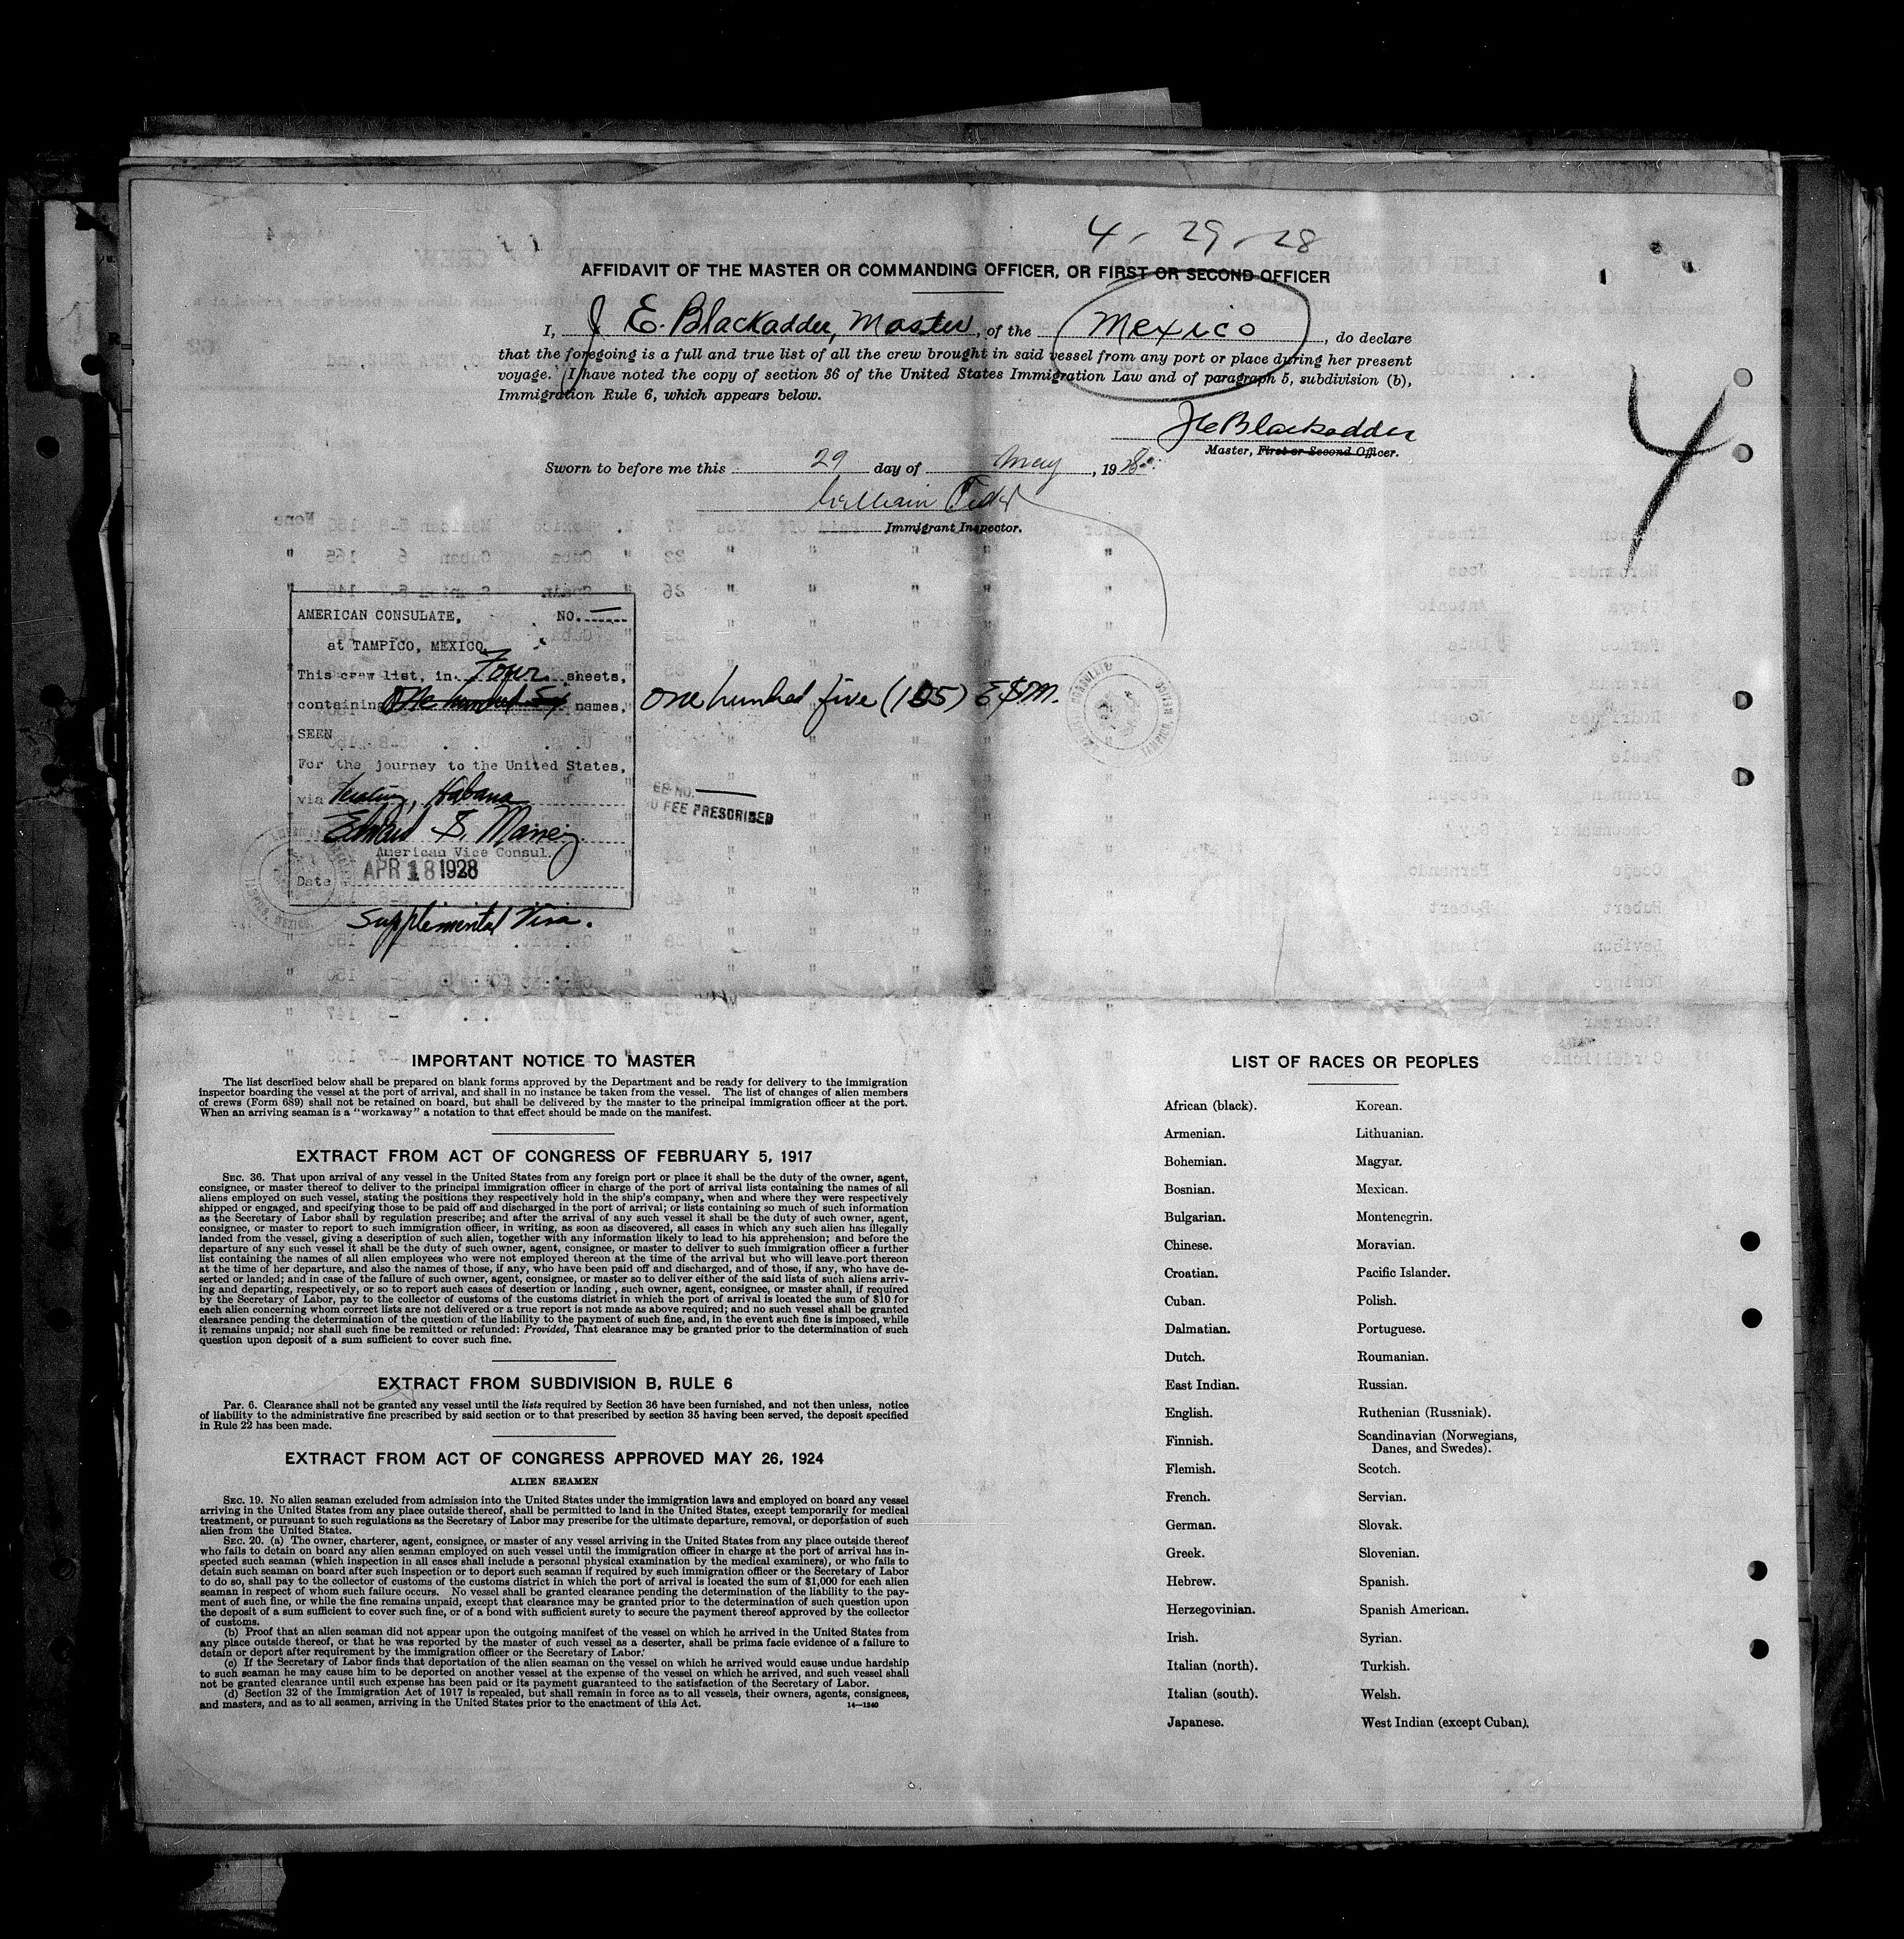 4 - 29 - 28
AFFIDAVIT OF THE MASTER OR COMMANDING OFFICER, OR FIRST OR SECOND OFFICER
I, J E. Blackadder, Master, of the Mexico, do declare
that the foregoing is a full and true list of all the crew brought in said vessel from any port or place during her present
voyage. I have noted the copy of section 36 of the United States Immigration Law and of paragraph 5, subdivision (b),
Immigration Rule 6, which appears below.
JE Blackadder
Master, First or Second Officer.
4
Sworn to before me this 29 day of May, 1928.
William
Immigrant Inspector.
AMERICAN CONSULATE, NO.
at TAMPICO, MEXICO.
This crew list, in Four sheets,
containing One hundred Six names, One hundred five (105) ESM.
SEEN
For the journey to the United States,
via Habana
Edward S. Maney
American Vice Consul.
Date APR 18 1928
NO FEE PRESCRIBED
Supplemental Visa.
IMPORTANT NOTICE TO MASTER
The list described below shall be prepared on blank forms approved by the Department and be ready for delivery to the immigration
inspector boarding the vessel at the port of arrival, and shall in no instance be taken from the vessel. The list of changes of alien members
of crews (Form 689) shall not be retained on board, but shall be delivered by the master to the principal immigration officer at the port.
When an arriving seaman is a "workaway" a notation to that effect should be made on the manifest.
EXTRACT FROM ACT OF CONGRESS OF FEBRUARY 5, 1917
SEC. 36. That upon arrival of any vessel in the United States from any foreign port or place it shall be the duty of the owner, agent,
consignee, or master thereof to deliver to the principal immigration officer in charge of the port of arrival lists containing the names of all
aliens employed on such vessel, stating the positions they respectively hold in the ship's company, when and where they were respectively
shipped or engaged, and specifying those to be paid off and discharged in the port of arrival; or lists containing so much of such information
as the Secretary of Labor shall by regulation prescribe; and after the arrival of any such vessel it shall be the duty of such owner, agent,
consignee, or master to report to such immigration officer, in writing, as soon as discovered, all cases in which any such alien has illegally
landed from the vessel, giving a description of such alien, together with any information likely to lead to his apprehension; and before the
departure of any such vessel it shall be the duty of such owner, agent, consignee, or master to deliver to such immigration officer a further
list containing the names of all alien employees who were not employed thereon at the time of the arrival but who will leave port thereon
at the time of her departure, and also the names of those, if any, who have been paid off and discharged, and of those, if any, who have de-
serted or landed; and in case of the failure of such owner, agent, consignee, or master so to deliver either of the said lists of such aliens arriv-
ing and departing, respectively, or so to report such cases of desertion or landing, such owner, agent, consignee, or master shall, if required
by the Secretary of Labor, pay to the collector of customs of the customs district in which the port of arrival is located the sum of $10 for
each alien concerning whom correct lists are not delivered or a true report is not made as above required; and no such vessel shall be granted
clearance pending the determination of the question of the liability to the payment of such fine, and, in the event such fine is imposed, while
it remains unpaid; nor shall such fine be remitted or refunded: Provided, That clearance may be granted prior to the determination of such
question upon deposit of a sum sufficient to cover such fine.
EXTRACT FROM SUBDIVISION B, RULE 6
Par. 6. Clearance shall not be granted any vessel until the lists required by Section 36 have been furnished, and not then unless, notice
of liability to the administrative fine prescribed by said section or to that prescribed by section 35 having been served, the deposit specified
in Rule 22 has been made.
EXTRACT FROM ACT OF CONGRESS APPROVED MAY 26, 1924
ALIEN SEAMEN
SEC. 19. No alien seaman excluded from admission into the United States under the immigration laws and employed on board any vessel
arriving in the United States from any place outside thereof, shall be permitted to land in the United States, except temporarily for medical
treatment, or pursuant to such regulations as the Secretary of Labor may prescribe for the ultimate departure, removal, or deportation of such
alien from the United States.
SEC. 20. (a) The owner, charterer, agent, consignee, or master of any vessel arriving in the United States from any place outside thereof
who fails to detain on board any alien seaman employed on such vessel until the immigration officer in charge at the port of arrival has in-
spected such seaman (which inspection in all cases shall include a personal physical examination by the medical examiners), or who fails to
detain such seaman on board after such inspection or to deport such seaman if required by such immigration officer or the Secretary of Labor
to do so, shall pay to the collector of customs of the customs district in which the port of arrival is located the sum of $1,000 for each alien
seaman in respect of whom such failure occurs. No vessel shall be granted clearance pending the determination of the liability to the pay-
ment of such fine, or while the fine remains unpaid, except that clearance may be granted prior to the determination of such question upon
the deposit of a sum sufficient to cover such fine, or of a bond with sufficient surety to secure the payment thereof approved by the collector
of customs.
(b) Proof that an alien seaman did not appear upon the outgoing manifest of the vessel on which he arrived in the United States from
any place outside thereof, or that he was reported by the master of such vessel as a deserter, shall be prima facie evidence of a failure to
detain or deport after requirement by the immigration officer or the Secretary of Labor.
(c) If the Secretary of Labor finds that deportation of the alien seaman on the vessel on which he arrived would cause undue hardship
to such seaman he may cause him to be deported on another vessel at the expense of the vessel on which he arrived, and such vessel shall
not be granted clearance until such expense has been paid or its payment guaranteed to the satisfaction of the Secretary of Labor.
(d) Section 32 of the Immigration Act of 1917 is repealed, but shall remain in force as to all vessels, their owners, agents, consignees,
and masters, and as to all seamen, arriving in the United States prior to the enactment of this Act.
14—1240
LIST OF RACES OR PEOPLES
African (black). Korean.
Armenian. Lithuanian.
Bohemian. Magyar.
Bosnian. Mexican.
Bulgarian. Montenegrin.
Chinese. Moravian.
Croatian. Pacific Islander.
Cuban. Polish.
Dalmatian. Portuguese.
Dutch. Roumanian.
East Indian. Russian.
English. Ruthenian (Russniak).
Finnish. Scandinavian (Norwegians,
Danes, and Swedes).
Flemish. Scotch.
French. Servian.
German. Slovak.
Greek. Slovenian.
Hebrew. Spanish.
Herzegovinian. Spanish American.
Irish. Syrian.
Italian (north). Turkish.
Italian (south). Welsh.
Japanese. West Indian (except Cuban).